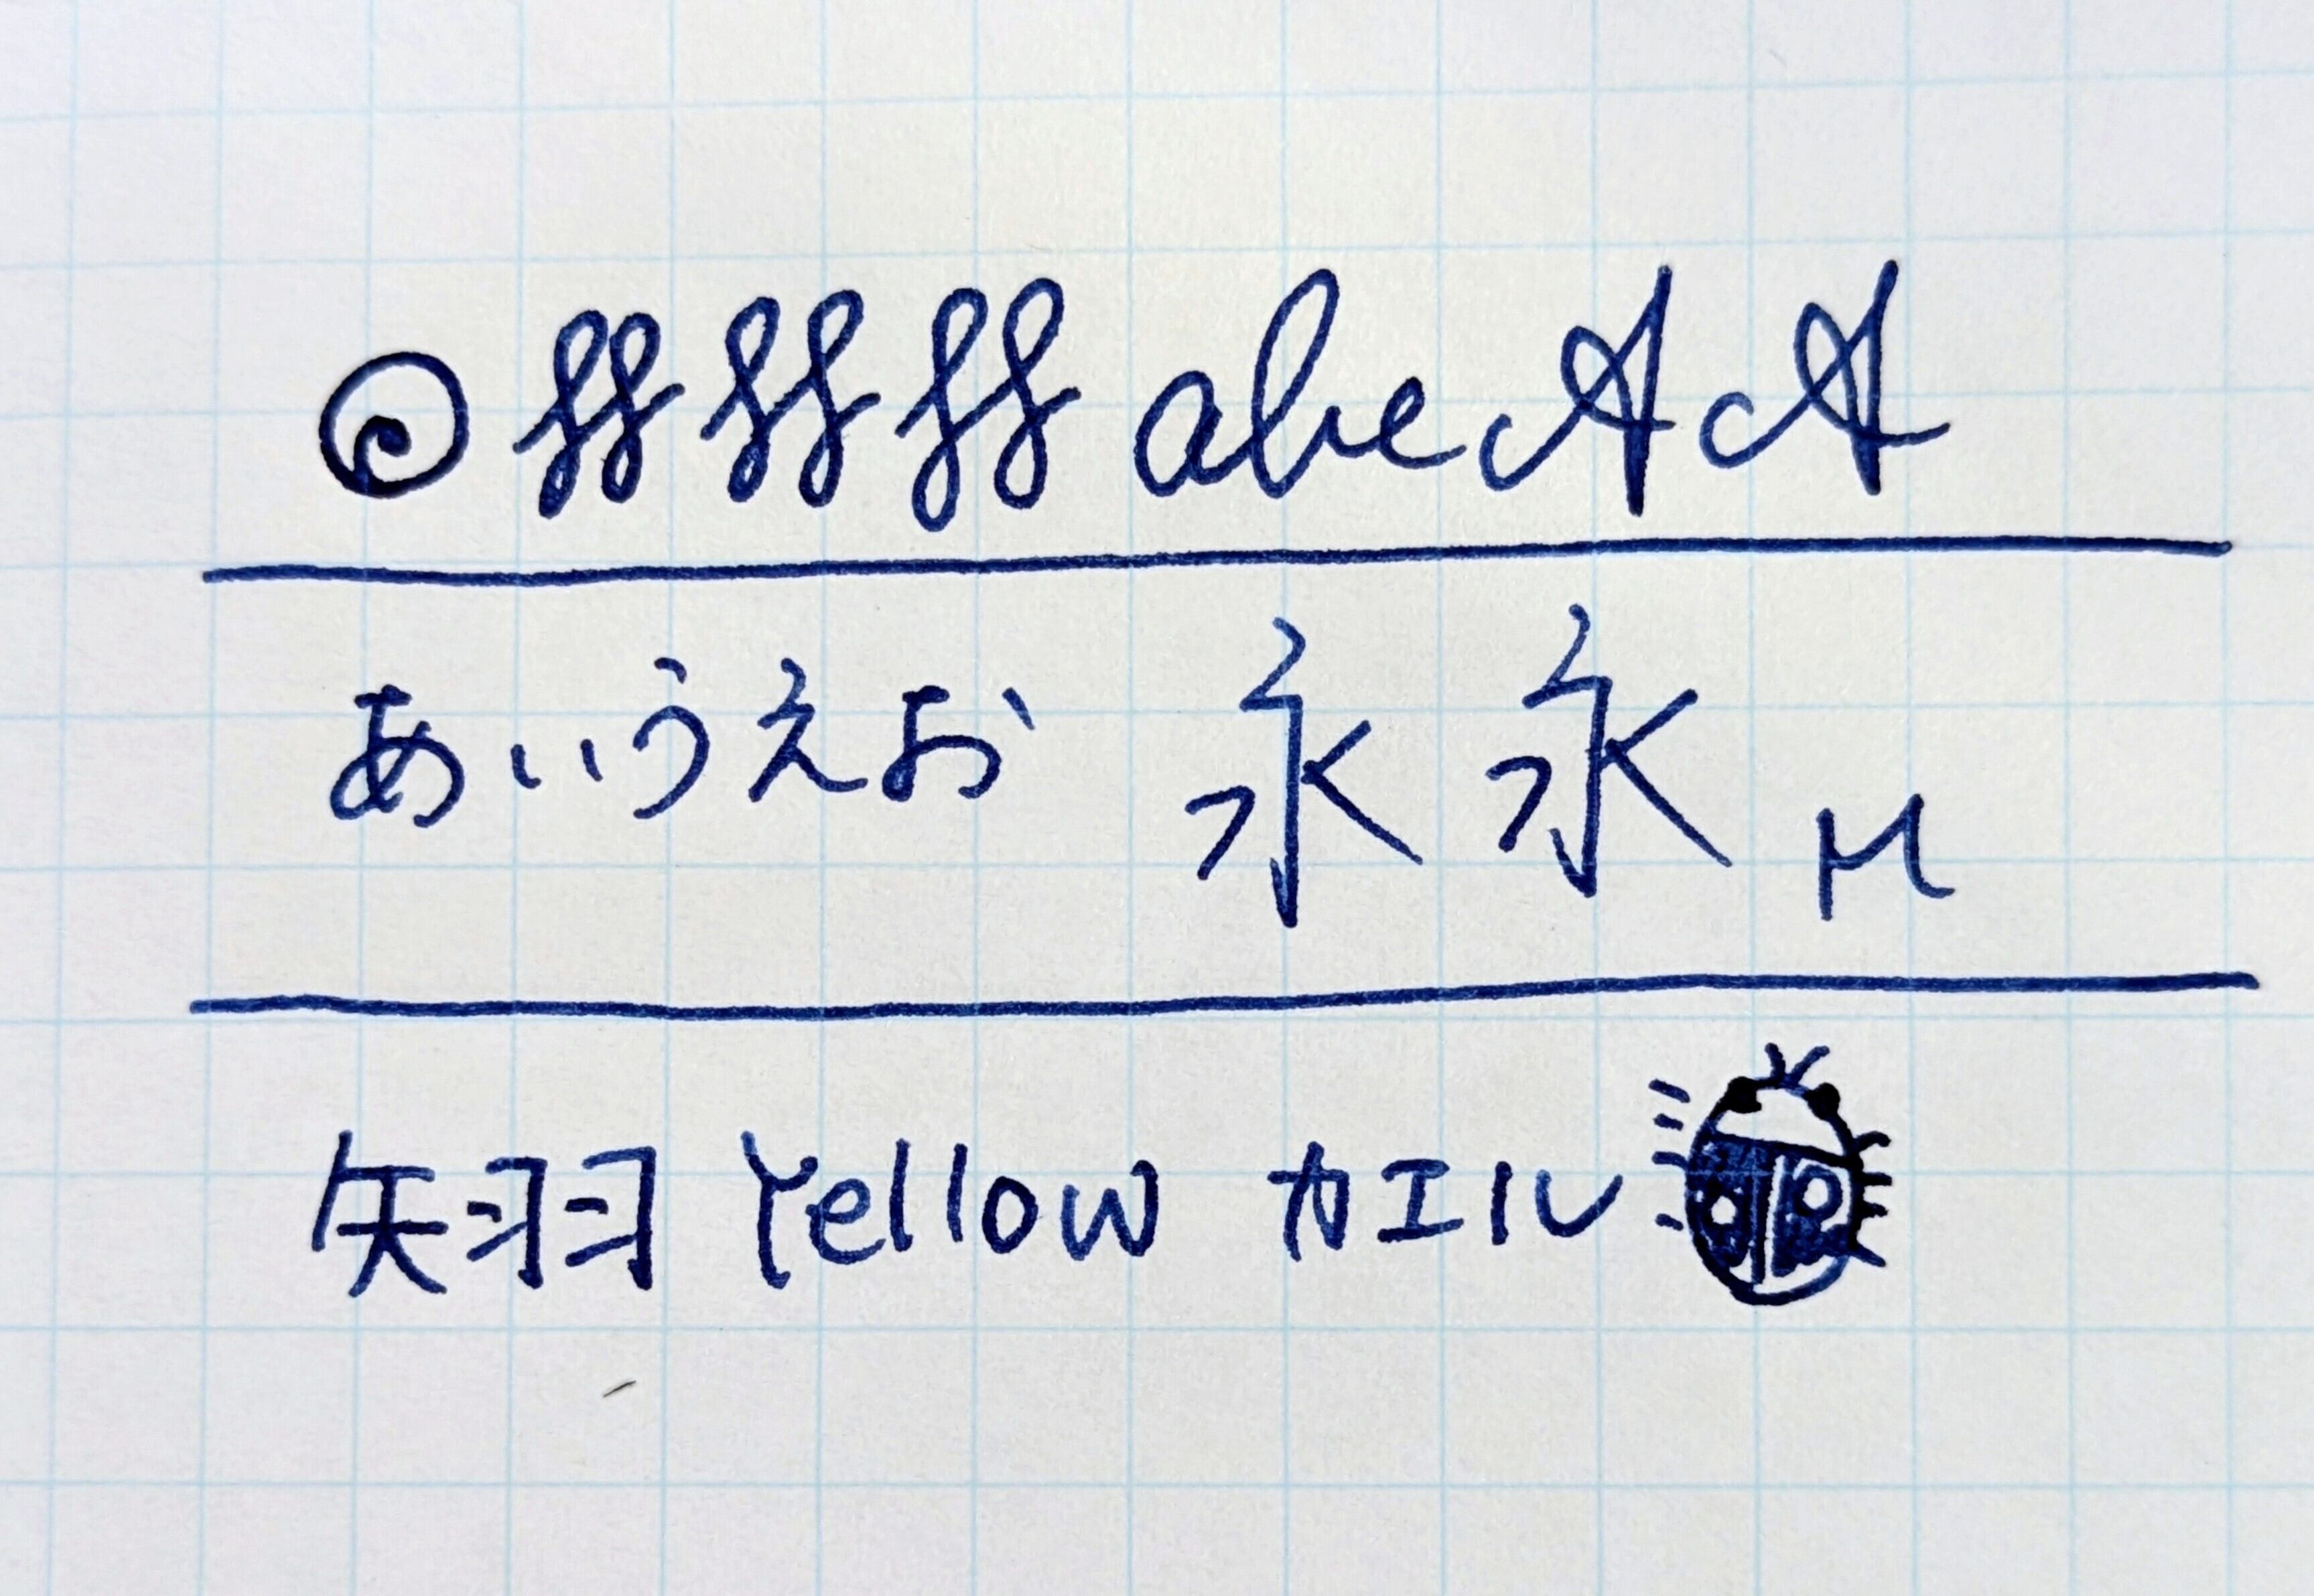 abc A A
あいうえお 永 永
矢羽 Yellow カエル